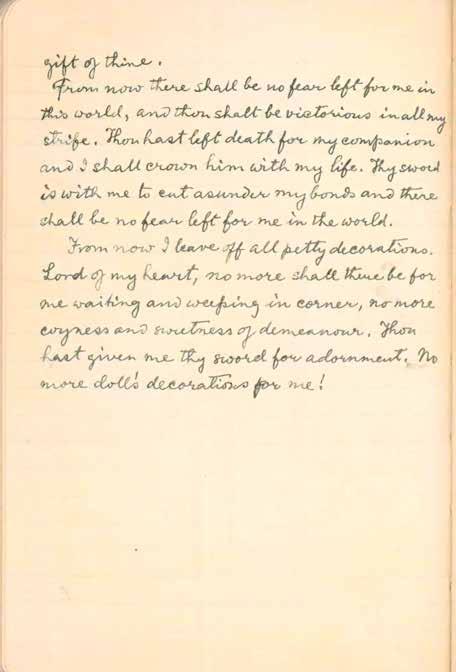 gift of thine.
From now there shall be no fear left for me in
this world, and thou shalt be victorious in all my
strife. Thou hast left death for my companion
and I shall crown him with my life. Thy sword
is with me to cut asunder my bonds and there
shall be no fear left for me in the world.
From now I leave off all petty decorations.
Lord of my heart, no more shall there be for
me waiting and weeping in corner, no more
coyness and sweetness of demeanour. Thou
hast given me thy sword for adornment. No
more doll's decorations for me!